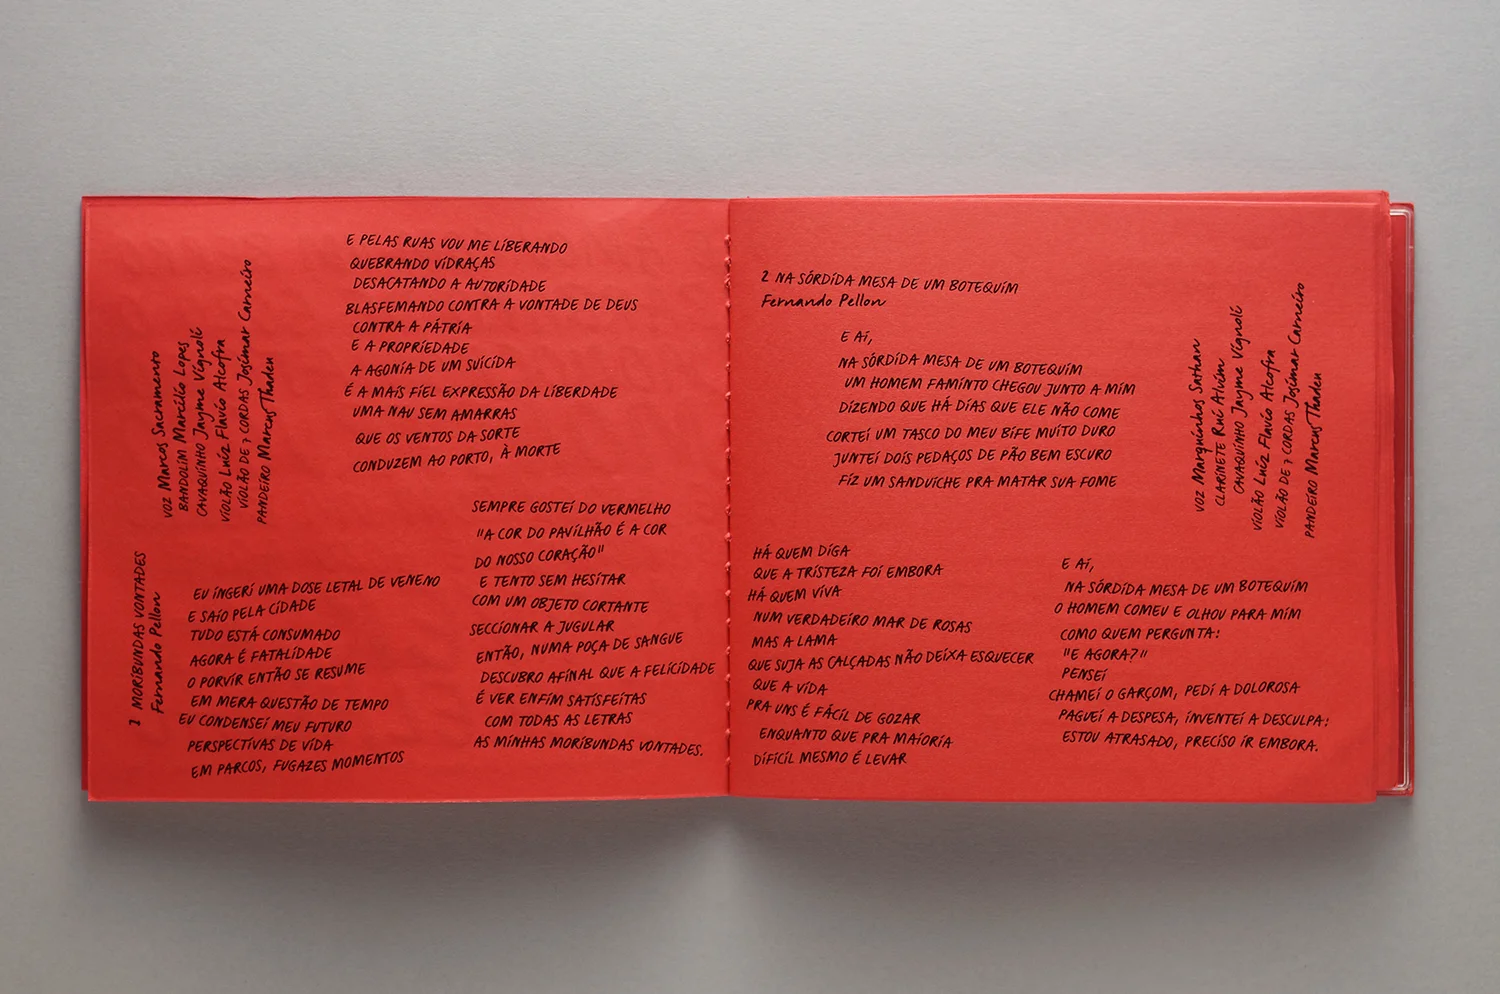 1 MORIBUNDAS VONTADES
Fernando Pellon
VOZ Marcos Sacramento
BANDOLIM Marcílio Lopes
CAVAQUINHO Jayme Vignoli
VIOLÃO Luíz Flavio Alcofra
VIOLÃO DE 7 CORDAS Josimar Carneiro
PANDEIRO Marcus Thadeu
EU INGERI UMA DOSE LETAL DE VENENO
E SAIO PELA CIDADE
TUDO ESTÁ CONSUMADO
AGORA É FATALIDADE
O PORVIR ENTÃO SE RESUME
EM MERA QUESTÃO DE TEMPO
EU CONDENSEI MEU FUTURO
PERSPECTIVAS DE VIDA
EM PARCOS, FUGAZES MOMENTOS
E PELAS RUAS VOU ME LIBERANDO
QUEBRANDO VIDRAÇAS
DESACATANDO A AUTORIDADE
BLASFEMANDO CONTRA A VONTADE DE DEUS
CONTRA A PÁTRIA
E A PROPRIEDADE
A AGONIA DE UM SUICIDA
É A MAIS FIEL EXPRESSÃO DA LIBERDADE
UMA NAU SEM AMARRAS
QUE OS VENTOS DA SORTE
CONDUZEM AO PORTO, À MORTE
SEMPRE GOSTEI DO VERMELHO
"A COR DO PAVILHÃO É A COR
DO NOSSO CORAÇÃO"
E TENTO SEM HESITAR
COM UM OBJETO CORTANTE
SECCIONAR A JUGULAR
ENTÃO, NUMA POÇA DE SANGUE
DESCUBRO AFINAL QUE A FELICIDADE
É VER ENFIM SATISFEITAS
COM TODAS AS LETRAS
AS MINHAS MORIBUNDAS VONTADES.
2 NA SÓRDIDA MESA DE UM BOTEQUIM
Fernando Pellon
E AÍ,
NA SÓRDIDA MESA DE UM BOTEQUIM
UM HOMEM FAMINTO CHEGOU JUNTO A MIM
DIZENDO QUE HÁ DIAS QUE ELE NÃO COME
CORTEI UM TASCO DO MEU BIFE MUITO DURO
JUNTEI DOIS PEDAÇOS DE PÃO BEM ESCURO
FIZ UM SANDUÍCHE PRA MATAR SUA FOME
HÁ QUEM DIGA
QUE A TRISTEZA FOI EMBORA
HÁ QUEM VIVA
NUM VERDADEIRO MAR DE ROSAS
MAS A LAMA
QUE SUJA AS CALÇADAS NÃO DEIXA ESQUECER
QUE A VIDA
PRA UNS É FÁCIL DE GOZAR
ENQUANTO QUE PRA MAIORIA
DIFÍCIL MESMO É LEVAR
E AÍ,
NA SÓRDIDA MESA DE UM BOTEQUIM
O HOMEM COMEU E OLHOU PARA MIM
COMO QUEM PERGUNTA:
"E AGORA?"
PENSEI
CHAMEI O GARÇOM, PEDI A DOLOROSA
PAGUEI A DESPESA, INVENTEI A DESCULPA:
ESTOU ATRASADO, PRECISO IR EMBORA.
VOZ Marquinhos Sathan
CLARINETE Rui Alvim
CAVAQUINHO Jayme Vignoli
VIOLÃO Luíz Flavio Alcofra
VIOLÃO DE 7 CORDAS Josimar Carneiro
PANDEIRO Marcus Thadeu